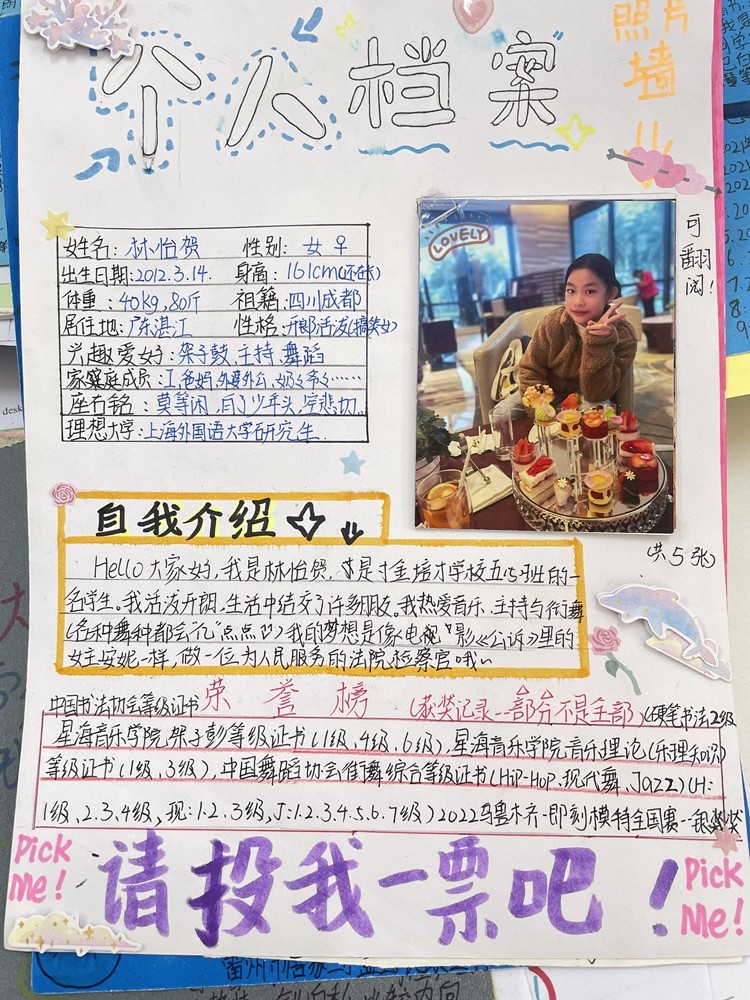 个人档案
照片墙
可翻阅！
LOVELY
姓名：林怡贺 性别：女♀
出生日期：2012.3.14. 身高：161cm(还在长)
体重：40kg,80斤 祖籍：四川成都
居住地：广东湛江 性格：开郎活泼(搞笑女)
兴趣爱好：架子鼓.主持.舞蹈
家庭成员：
座右铭：莫等闲,白了少年头,空悲切。
理想大学：上海外国语大学研究生.
(共5张)
自我介绍
Hello大家好,我是林怡贺,培才学校五班的一
名学生。我活泼开朗,生活中结交了许多朋友。我热爱音乐.主持与街舞
(各种舞种都会亿"点点")我的梦想是像电视影《公诉》里的
女主安妮一样,做一位为人民服务的法院检察官哦~
中国书法协会等级证书 荣誉榜 (获奖记录--部分不是全部)(硬笔书法2级
星海音乐学院架子彭等级证书(1级,4级,6级),星海音乐学院音乐理论(乐理知识)
等级证书(1级,3级),中国舞蹈协会街舞综合等级证书(HiP-HoP.现代舞、Jazz)(H:
1级,2.3,4级,现:1.2.3级,J:1.2.3.4.5.6.7级)2022乌鲁木齐-即刻模特全国赛--银奖
Pick Me!
请投我一票吧！
Pick Me!